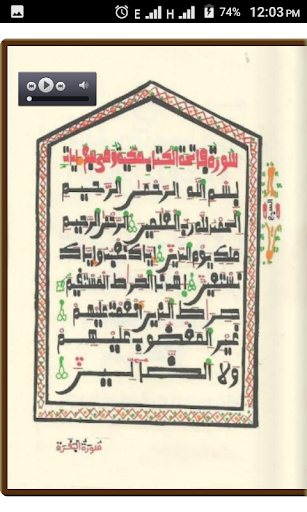 E H 74% 12:03 PM
سورة فاتحة الكتاب مكية وهي سبع ءايات
بسم الله الرحمن الرحيم
الحمد لله رب العلمين الرحمن الرحيم
ملك يوم الدين إياك نعبد وإياك
نستعين اهدنا الصراط المستقيم
صراط الذين أنعمت عليهم
غير المغضوب عليهم
ولا الضالين
سورة البقرة